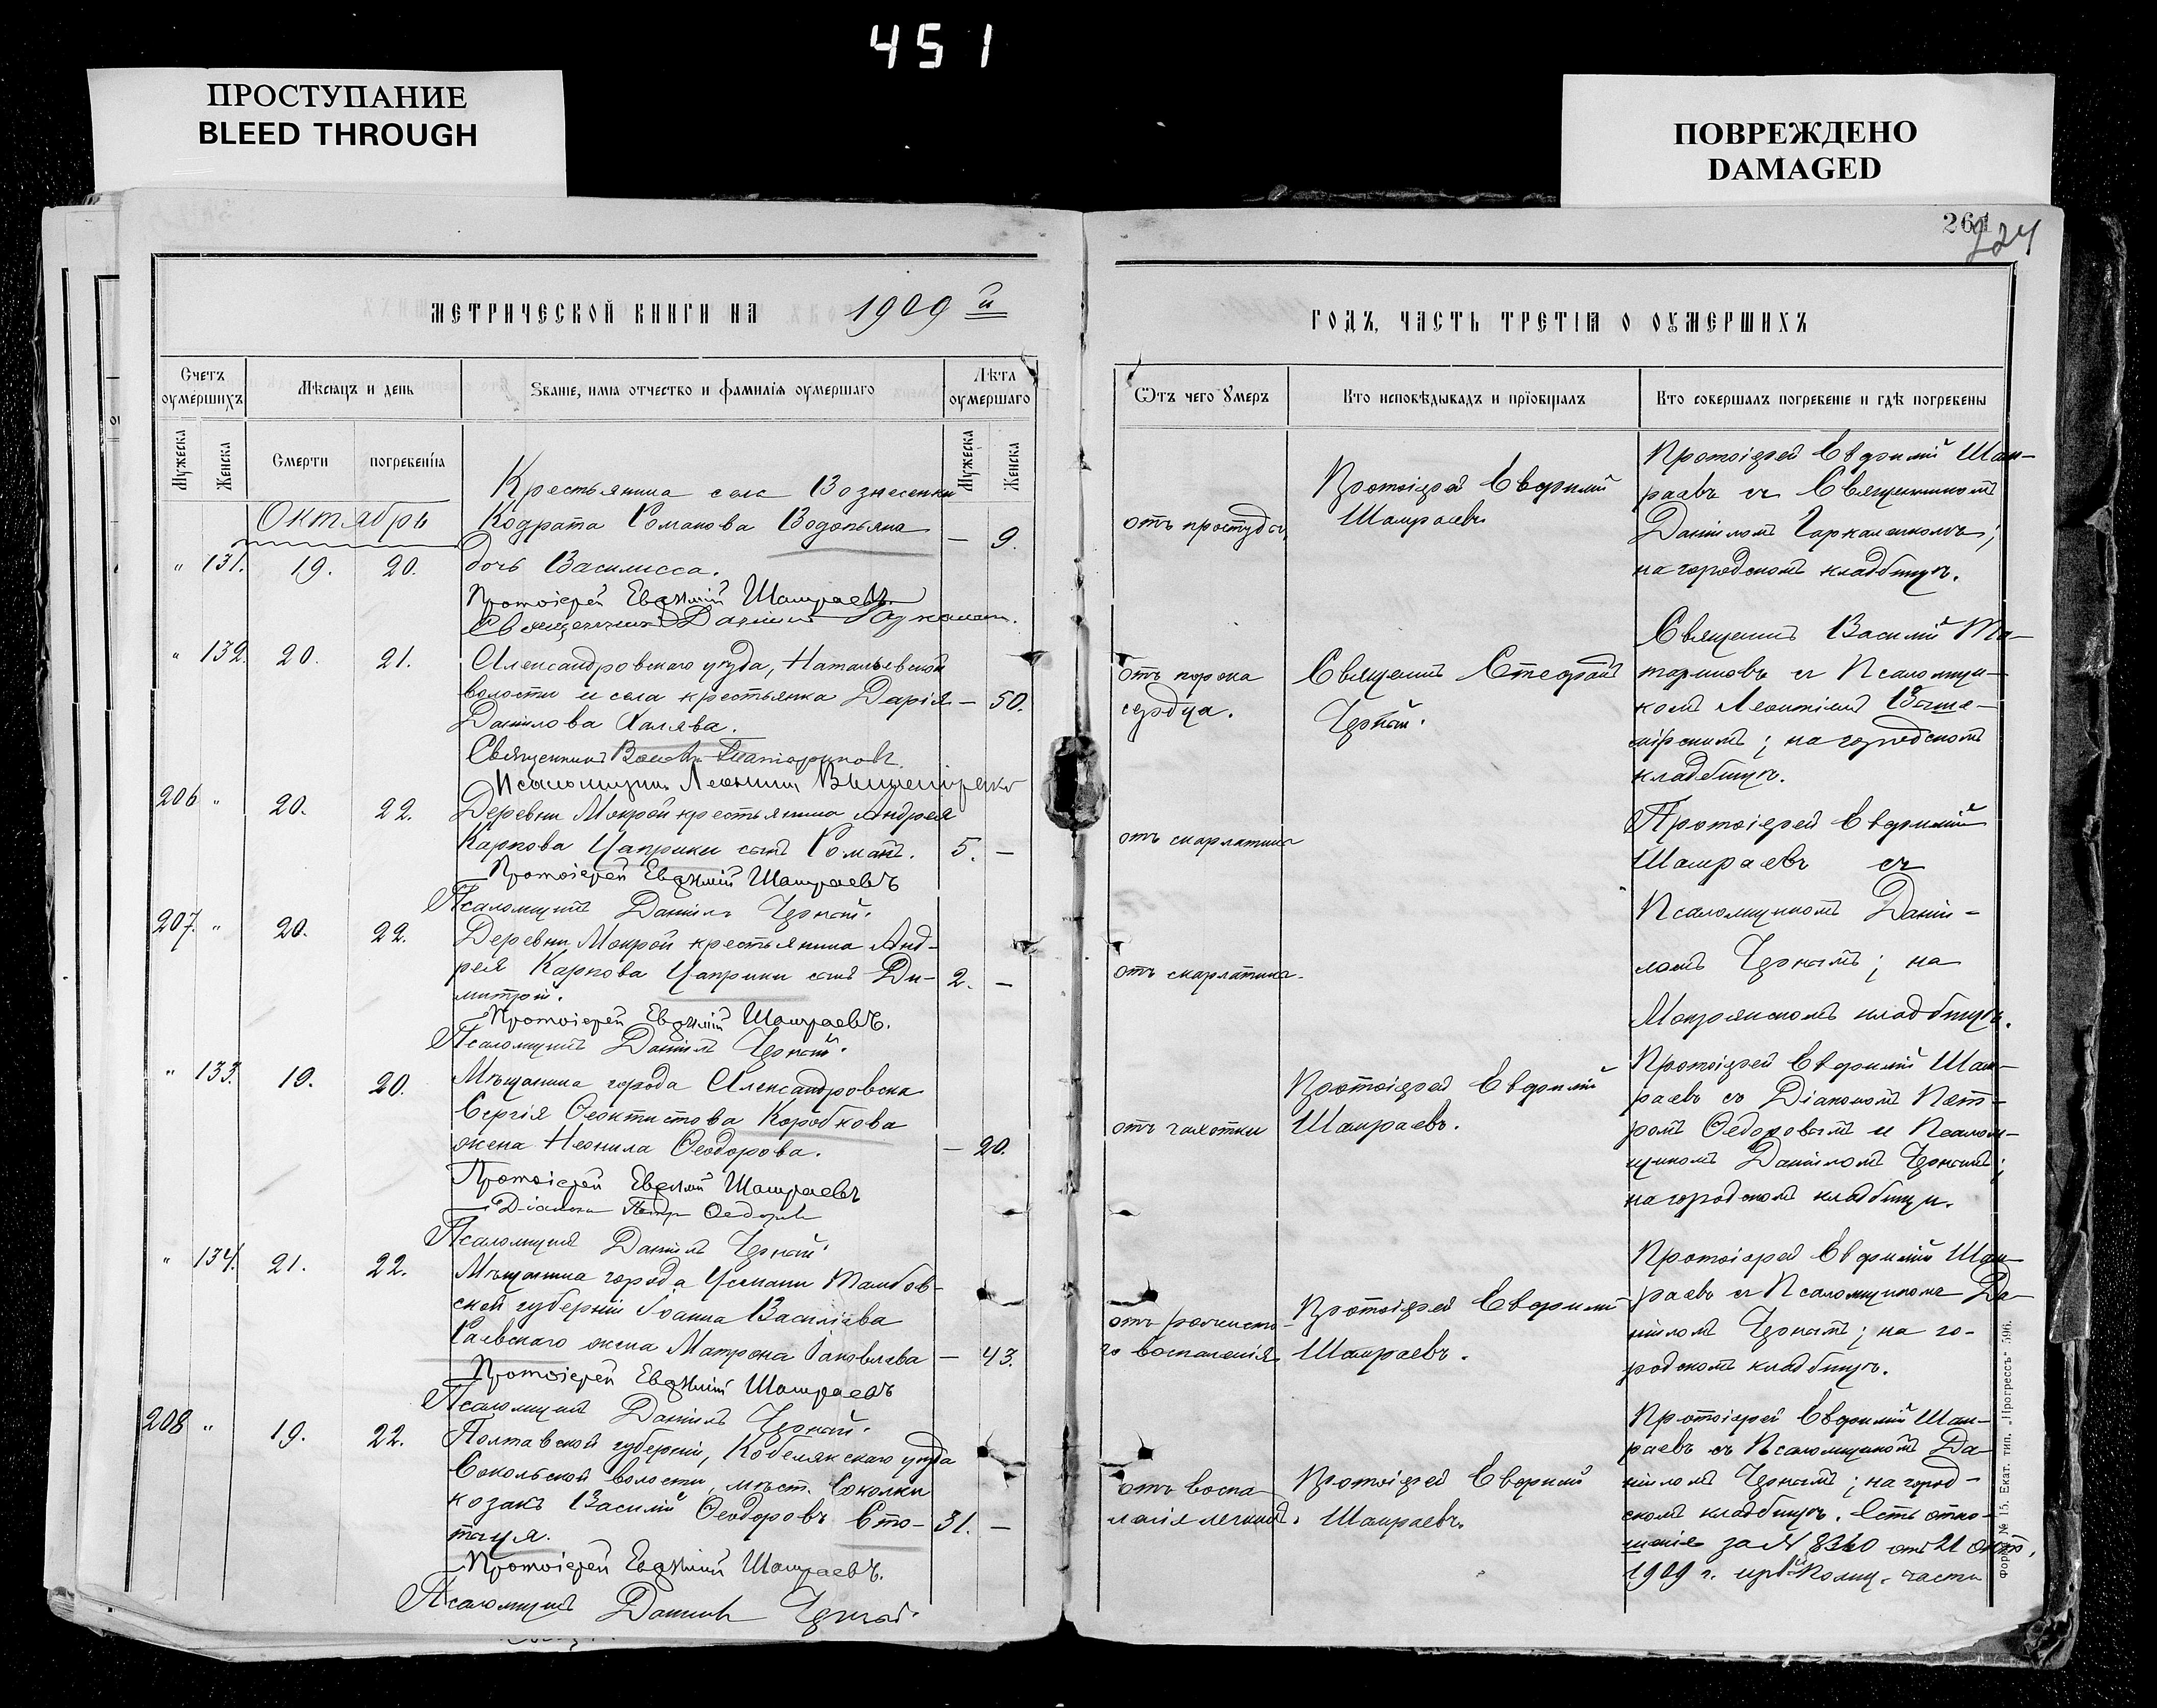 451
ПРОСТУПАНИЕ
BLEED THROUGH
ПОВРЕЖДЕНО
DAMAGED
261
224
МЕТРИЧЕСКОЙ КНИГИ НА 1909 й
ГОДЪ, ЧАСТЬ ТРЕТІЯ О ОУМЕРШИХЪ
Счетъ оумершихъ
Мѣсяцъ и день
Званіе, имя отчество и фамилія оумершаго
Лѣта оумершаго
Мужеска
Женска
Смерти
погребенія
Мужеска
Женска
Отъ чего умеръ
Кто исповѣдывалъ и пріобщалъ
Кто совершалъ погребеніе и гдѣ погребены
Октябрь
Крестьянина села Вознесенки
Кодрата Романова Водопьяна — 9.
" 131. 19. 20. дочь Василисса.
Протоіерей Евфимій Шамраевъ
Священникъ Даніилъ
отъ простуды
Протоіерей Евфимій
Шамраевъ
Протоіерей Евфимій Шам-
раевъ съ Священникомъ
Даніиломъ
на городскомъ кладбищѣ.
" 132. 20. 21. Александровскаго уѣзда, Натальевской
волости и села крестьянка Дарія — 50.
Данилова Халява.
Священникъ
Псаломщикъ Леонтій
отъ порока
сердца.
Священникъ Стефанъ
Черный.
Священникъ Василій Та-
тариновъ съ Псаломщи-
комъ Леонтіемъ Выше-
мірскимъ; на городскомъ
кладбищѣ.
206 " 20. 22. Деревни Мокрой крестьянина Андрея
Карпова Цаприки сынъ Романъ. 5. —
Протоіерей Евфимій Шамраевъ
Псаломщикъ Даніилъ Черный.
отъ скарлатины
Протоіерей Евфимій
Шамраевъ съ
Псаломщикомъ Дані-
ломъ Чернымъ; на
Мокрянскомъ кладбищѣ.
207. " 20. 22. Деревни Мокрой крестьянина Анд-
рея Карпова Цаприки сынъ Ди- 2. —
митрій.
Протоіерей Евфимій Шамраевъ.
Псаломщикъ Даніилъ Черный.
отъ скарлатины
" 133. 19. 20. Мѣщанина города Александровска
Сергія Ѳеоктистова Коробкова
жена Неонила Ѳеодорова. — 20.
Протоіерей Евфимій Шамраевъ
Діаконъ Петръ
Псаломщикъ Даніилъ Черный.
отъ чахотки
Протоіерей Евфимій
Шамраевъ.
Протоіерей Евфимій Шам-
раевъ съ Діакономъ Пет-
ромъ Ѳедоровымъ и Псалом-
щикомъ Даніиломъ Чернымъ;
на городскомъ кладбищѣ.
" 134. 21. 22. Мѣщанина города Усмани Тамбов-
ской губерніи Іоанна Василіева
Раевскаго жена Матрона Іаковлева — 43.
Протоіерей Евфимій Шамраевъ
Псаломщикъ Даніилъ Черный.
отъ рожисто-
го воспаленія
Протоіерей Евфимій
Шамраевъ.
Протоіерей Евфимій Шам-
раевъ съ Псаломщикомъ Да-
ніиломъ Чернымъ; на го-
родскомъ кладбищѣ.
208 " 19. 22. Полтавской губерніи, Кобелякскаго уѣзда
Сокольской волости, мѣст. Соколки
козакъ Василій Ѳеодоровъ Сто- 31. —
Протоіерей Евфимій Шамраевъ.
Псаломщикъ Даніилъ Черный.
отъ воспа-
ленія легкихъ.
Протоіерей Евфимій
Шамраевъ.
Протоіерей Евфимій Шам-
раевъ съ Псаломщикомъ Да-
ніиломъ Чернымъ; на город-
скомъ кладбищѣ. Есть отно-
шеніе за № 8360 отъ 21 окт.
1909 г. части
Форма № 15. Екат. тип. „Прогрессъ" 596.